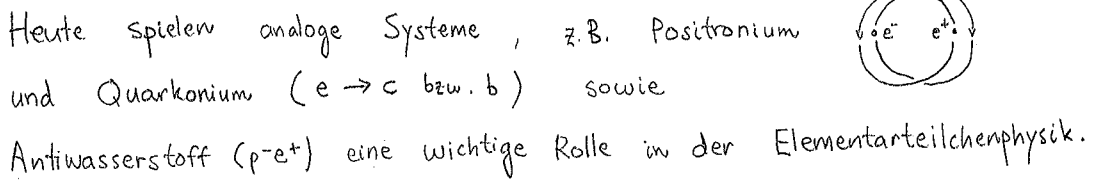 Heute spielen analoge Systeme , z.B. Positronium
e⁻ e⁺
und Quarkonium ( e → c bzw. b ) sowie
Antiwasserstoff (p⁻e⁺) eine wichtige Rolle in der Elementarteilchenphysik.